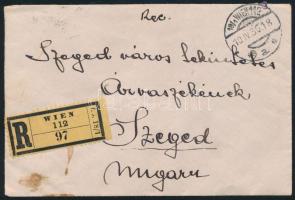 Rec.
Szeged város tekintetes
Árvaszékének
Szeged
Ungarn
R
WIEN
112
97